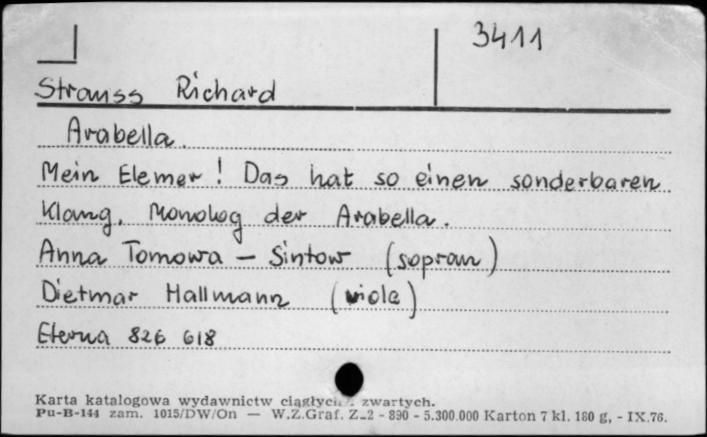 3411
Strauss Richard
Arabella.
Mein Elemer! Das hat so einen sonderbaren
Klang. Monolog der Arabella.
Anna Tomowa – Sintow (sopran)
Dietmar Hallmann (viola)
Eterna 826 618
Karta katalogowa wydawnictw ciągłych i zwartych.
Pu-B-144 zam. 1015/DW/On — W.Z.Graf. Z-2 - 890 - 5.300.000 Karton 7 kl. 180 g, - IX.76.